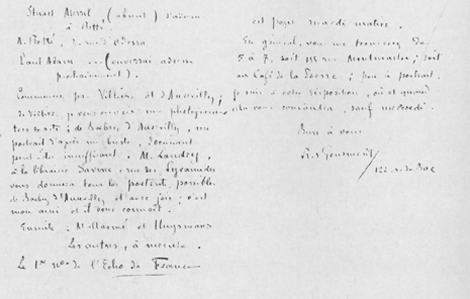 Stuart Merril, (absent) d'adress
à Retté
A. Retté, 2 rue d'Odessa
Paul Adam (enverrai adresse
prochainement).
Commencez par Villiers, et d'Aurevilly;
de Villiers, je vous enverrai une photographie
très rare; de Barbey d'Aurevilly, un
portrait d'après un buste, document
peut-être insuffisant. M. Landry,
à la librairie Savine, rue des Pyramides
vous donnera tous les portraits possibles
de Barbey d'Aurevilly et avec joie; c'est
mon ami et il vous connaît.
Ensuite: Mallarmé et Huysmans
Les autres, à mesure.
Le 1er no de l'Echo de France
est pour mardi matin.
En général, vous me trouverez de
5 à 7, soit rue Montmartre; soit
au Café de la Bourse; pour le portrait,
je suis à votre disposition, où et quand
cela vous conviendra, sauf mercredi.
Bien à vous
R. de Gourmont
122 rue du Bac